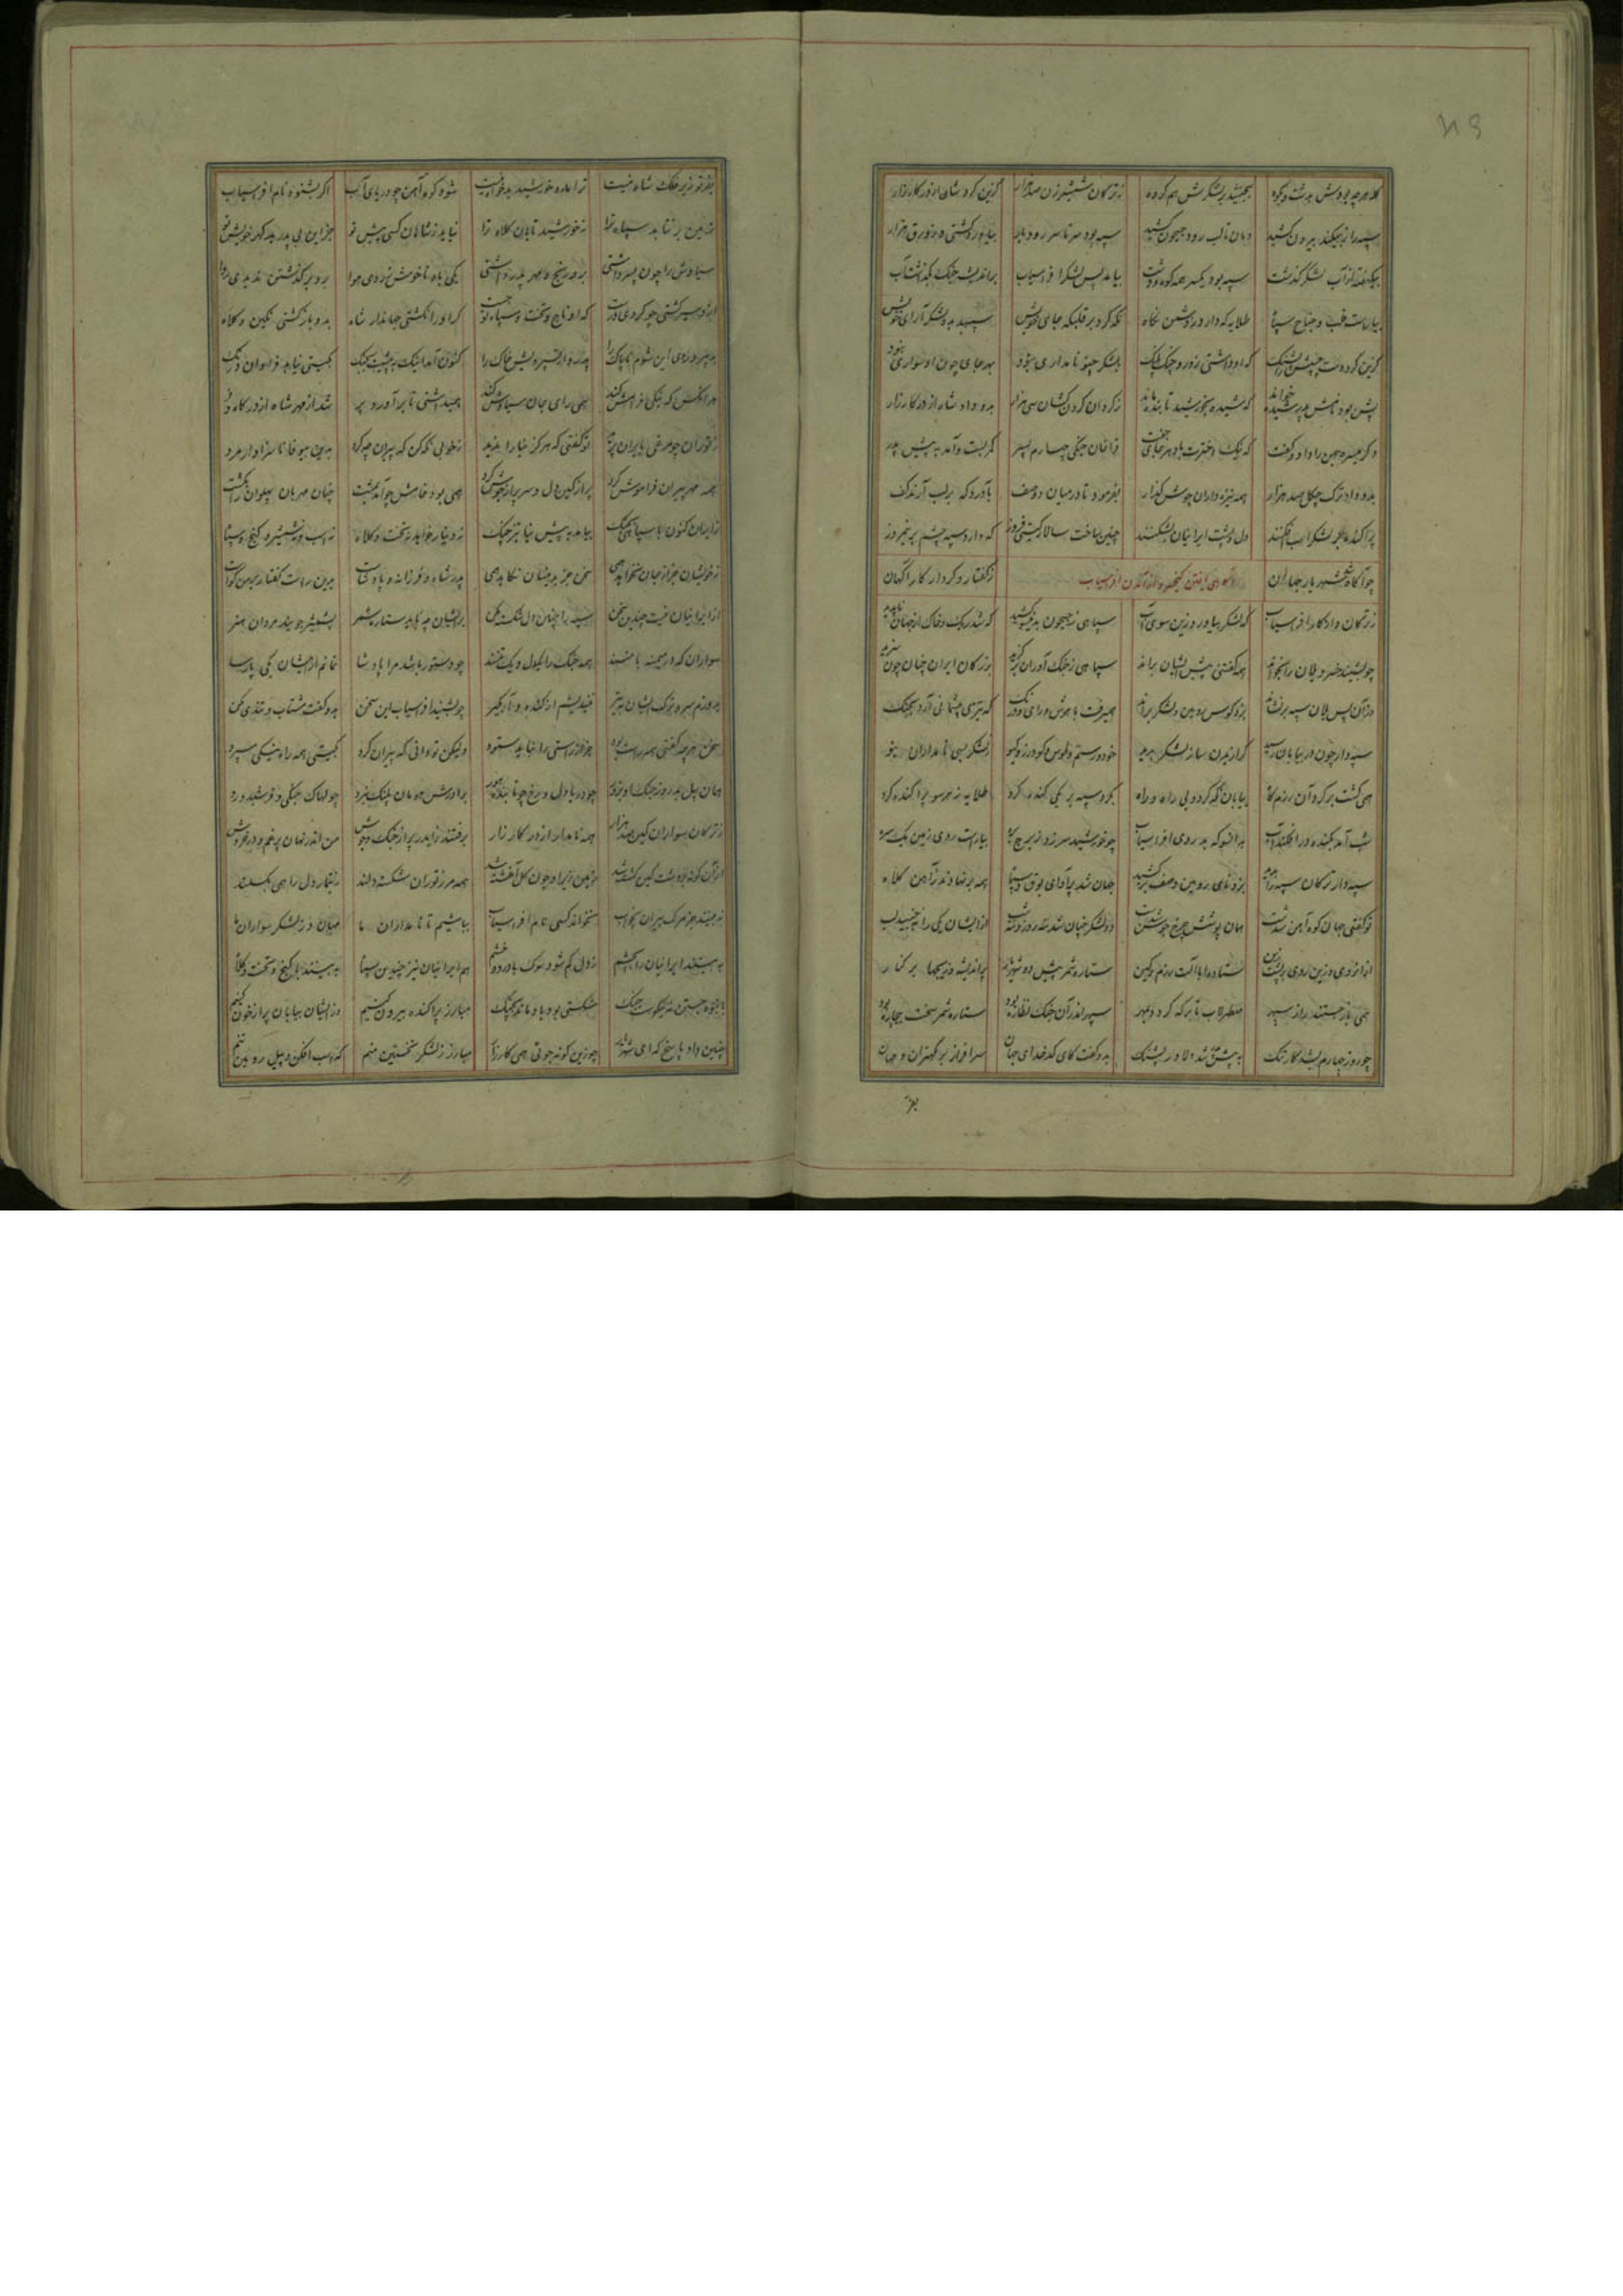 کله هرچه بودش بدشت و بکوه بلشکرش هم گروه ز ترکان شمشیرزن صد هزار گزین کرد شاه از در کارزار
سپه را ز بیکند بیرون کشید دمان تا لب رود جیحون کشید سپه بود سرتاسر رود بار بیاورد کشتی و زورق هزار
بیک هفته از آب لشکر گذشت سپه بود یکسر همه کوه و دشت بیامد پس لشکر افراسیاب بر اندیشه جنگ بگذشت آب
بیاراست قلب و جناح سپاه طلایه که دارد ز دشمن نگاه نگه کرد بر قلبگه جای خویش سپهبد بد و لشکر آرای خویش
گزین کرد دست که او داشتی زور و چنگ پلنگ بلشکر چنو نامداری نبود بهر جای چون او سواری نبود
پشن بود نامش پدر شیده خواند که شیده بخورشید تابنده ماند ز گردان گردن کشان سی هزار بدو داد شاه از در کارزار
دگر میسره جهن را داد و گفت که نیک اخترت باد هر جای جفت قراخان جنگی چهارم پسر کمر بست و آمد به پیش پدر
بدو داد ترک چگل صد هزار همه نیزه داران جوشن گذار بفرمود تا در میان دو صف بر لب آرند کف
پراکنده بر لشکر اسب افکنند دل و پشت ایرانیان بشکنند چنین ساخت سالار گیتی فروز که دارد سپه چشم بر نیمروز
چو آگاه شد شهریار جهان آگاهی یافتن کیخسرو از آمدن افراسیاب ز گفتار و کردار کارآگهان
ز ترکان و از کار افراسیاب که لشکر بیاورد زین سوی آب سپاهی ز جیحون بدینسو کشید که شد ریگ و خاک از جهان ناپدید
چو بشنید خسرو یلان را بخواند همه گفتنی پیش ایشان براند سپاهی ز جنگ آوران برگزید بزرگان ایران چنان چون سزید
وزان پس یلان سپه برنشاند بزد کوس روئین و لشکر براند همیرفت با هوش و رای و درنگ که تیزی پشیمانی آرد بجنگ
سپهدار چون در بیابان رسید گرازیدن ساز لشکر بدید خود و رستم و طوس و گودرز و گیو ز لشکر بسی نامداران نیو
همی گشت بر گرد آن رزمگاه بیابان نگه کرد و بی راه و راه بگرد سپه بر یکی کنده کرد طلایه به هر سو پراکنده کرد
شب آمد بکنده در افکند آب بدانسو که بد روی افراسیاب چو خورشید سر زد ز برج بره بیاراست روی زمین یکسره
سپهدار ترکان سپه را بدید بزد نای روئین و صف برکشید جهان شد پر آوای بوق و سپاه همه بر نهادند ز آهن کلاه
تو گفتی جهان کوه آهن شدست همان پوشش چرخ جوشن شدست دو لشکر چنان شد سه روز و سه شب از ایشان یکی را نجنبید لب
از آنروی و زین روی بر پشت زین ستاده ابا آلت رزم و کین ستاره شمر پیش دو شهریار پر اندیشه و زیجها بر کنار
همی باز جستند راز سپهر صطرلاب تا بر که گردد بمهر سپهر اندر آن جنگ نظاره بود ستاره شمر سخت بیچاره بود
چو روز چهارم بشد کار تنگ به پیش پدر شد دلاور پشنگ بدو گفت کای کدخدای جهان سرافراز بر کهتران و مهان
بفر تو زیر فلک شاه نیست ترا ماه و خورشید بدخواه نیست شود کوه آهن چو دریای آب اگر بشنود نام افراسیاب
زمین بر نتابد سپاه ترا نه خورشید تابان کلاه ترا نیاید ز شاهان کسی پیش تو جز این بی پدر بد گهر خویش تو
سیاوش را چون پسر داشتی بدو رنج و مهر پدر داشتی یکی باد ناخوش ز روی هوا برو بر گذشتن ندیدی روا
ازو سیر گشتی چو کردی درست که او تاج و تخت و سپاه تو جست گر او را نکشتی جهاندار شاه بدو بازگشتی نگین و کلاه
کنون آمد اینک به پیشت بجنگ بگیتی نیابد فراوان درنگ
هر آنکس که نیکی فرامش کند همی رای جان سیاوش کند بپر داشتی تا برآورد پر شد از مهر شاه از در تاج زر
ز توران چو مرغی بایران پرید تو گفتی که هرگز نیا را ندید ز خوبی نگه کن که پیران چه کرد بدین بیوفا ناسزاوار مرد
همه مهر پیران فراموش کرد پر از کین دل و سر پر از جوش کرد همی بود خامش چو آمد بمشت چنان مهربان پهلوان را بکشت
از ایران کنون با سپاهی بجنگ بیامد به پیش نیا تیز چنگ نه دینار خواهد نه تخت و کلاه نه اسب و نه شمشیر و گنج و سپاه
ز خویشان جز از جان نخواهد همی سخن جز برینسان نکاهد همی پدر شاه و فرزانه و پادشاست برین راست گفتار من بر گواست
از ایرانیان نیست چندین سخن سپه را چنان دل شکسته مکن بدیشان چه باید ستاره شمر بشمشیر جویند مردان هنر
سواران که در میمنه با منند همه جنگ را یکدل و یک تنند چو دستور باشد مرا پادشا نمانم از ایشان یکی پارسا
بدوزم سر و ترک ایشان بتیر نیندیشم از کنده و آبگیر چو بشنید افراسیاب این سخن بدو گفت مشتاب و تندی مکن
سخن هرچه گفتی همه راست بود جز از راستی را نباید ستود ولیکن تو دانی که پیران گرد بگیتی همه راه نیکی سپرد
همان پیل بد روز جنگ او بزور چو دریا دل و رخ چو تابنده هور برادرش هومان پلنگ نبرد چو لهاک جنگی و فرشیدورد
ز ترکان سواران کین صد هزار همه نامدار از در کارزار برفتند از ایدر پر از جنگ و جوش من اندر نهان پر غم و پر خروش
از آن کو بدین دشت کین کشته شد زمین زیر او چون گل آغشته شد همه مرز توران شکسته دلند ز تیمار دل را همی بگسلند
نه بینند جز مرگ پیران بخواب نخواند کسی نام افراسیاب بباشیم تا نامداران ما مهان و ز لشکر سواران ما
به بینند ایرانیان را بچشم ز دل کم شود سوگ با درد و خشم هم ایرانیان نیز چندین سپاه به بینند با گنج و تخت و کلاه
به انبوه جستن نه نیکوست جنگ شکستی بود باد ماند بچنگ مبارز پراکنده بیرون کنیم وزایشان بیابان پر از خون کنیم
چنین داد پاسخ که ای شهریار چو زین گونه جوئی همی کارزار مبارز ز لشکر نخستین منم که اسب افکن و پیل روئین تنم